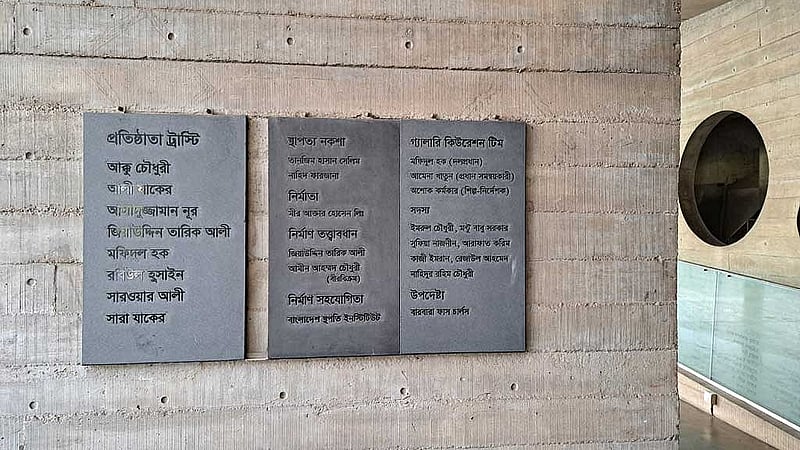 প্রতিষ্ঠাতা ট্রাস্টি
আক্কু চৌধুরী
আলী যাকের
আসাদুজ্জামান নূর
জিয়াউদ্দিন তারিক আলী
মফিদুল হক
রবিউল হুসাইন
সারওয়ার আলী
সারা যাকের
স্থাপত্য নকশা
তানজিম হাসান সেলিম
নাহিদ ফারজানা
নির্মাতা
মীর আক্তার হোসেন লিঃ
নির্মাণ তত্ত্বাবধান
জিয়াউদ্দিন তারিক আলী
আমীন আহম্মদ চৌধুরী
(বীরবিক্রম)
নির্মাণ সহযোগিতা
বাংলাদেশ স্থপতি ইনস্টিটিউট
গ্যালারি কিউরেশন টিম
মফিদুল হক (দলপ্রধান)
আমেনা খাতুন (প্রধান সমন্বয়কারী)
অশোক কর্মকার (শিল্প-নির্দেশক)
সদস্য
ইমরুল চৌধুরী, মন্টু বাবু সরকার
সুফিয়া নাজনীন, আরাফাত করিম
কাজী ইমরান, রেজাউল আহমেদ
নাহিদুর রহিম চৌধুরী
উপদেষ্টা
বারবারা ফাস চার্লস